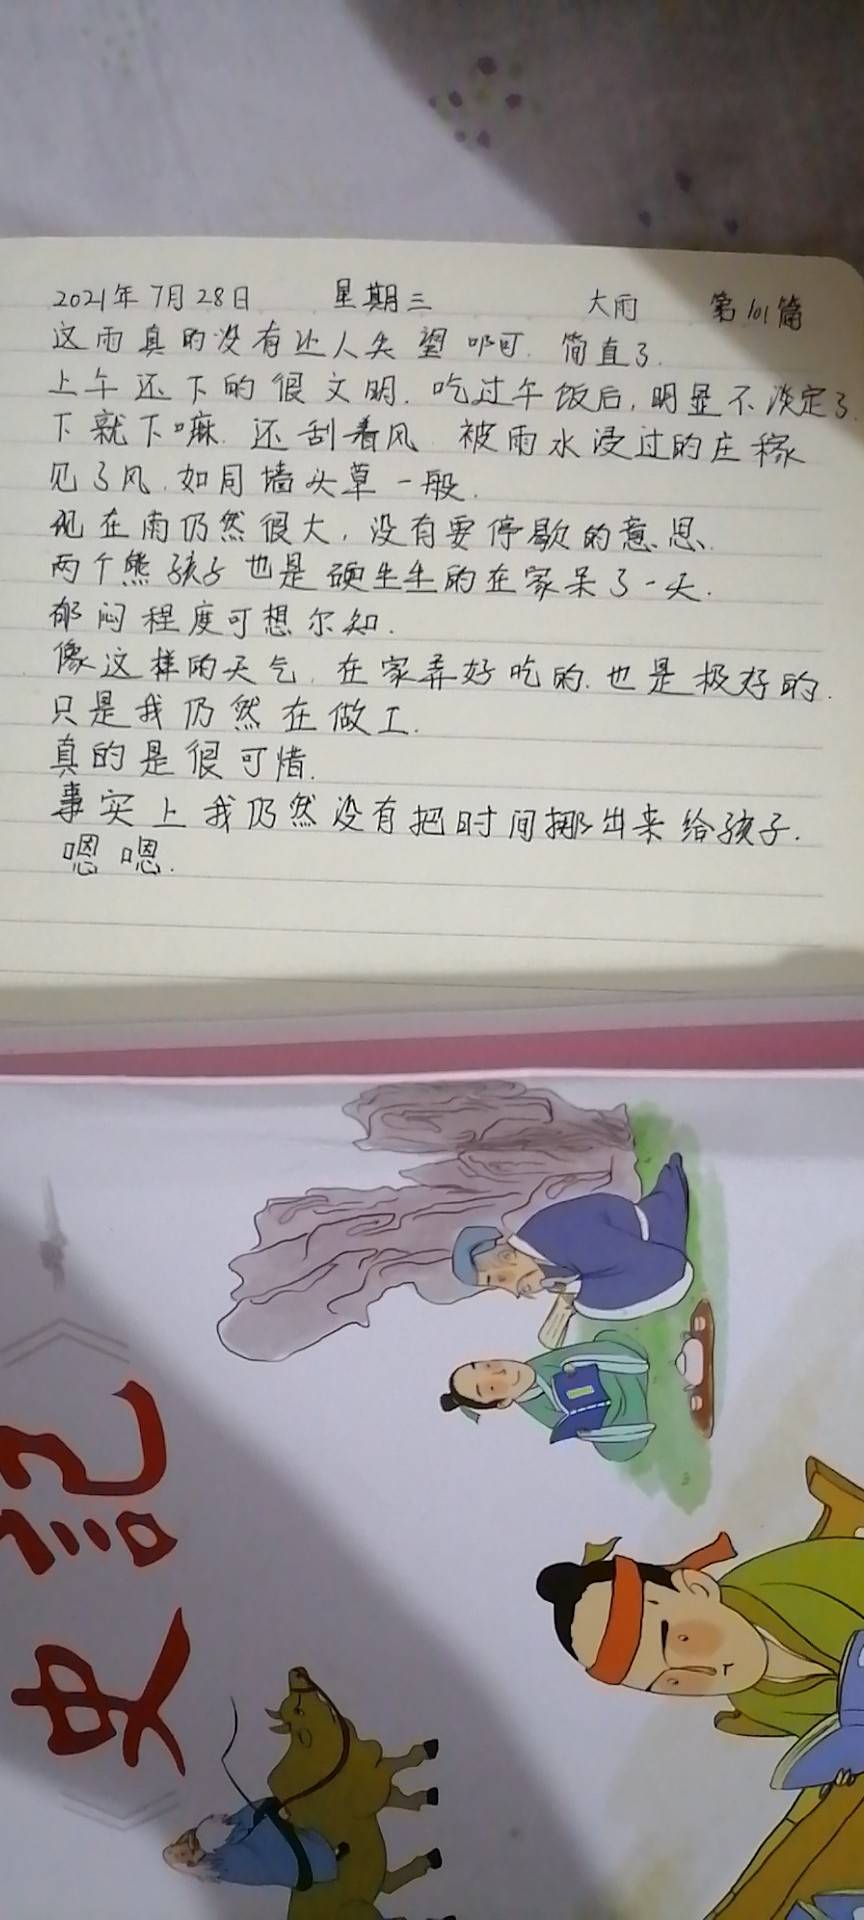 2021年7月28日 星期三 大雨 第101篇
这雨真的没有让人失望啊 简直了.
上午还下的很文明. 吃过午饭后, 明显不淡定了.
下就下嘛. 还刮着风 被雨水浸过的庄稼
见了风. 如同墙头草一般.
现在雨仍然很大, 没有要停歇的意思.
两个熊孩子也是硬生生的在家呆了一天.
郁闷程度可想尔知.
像这样的天气, 在家弄好吃的. 也是极好的.
只是我仍然在做工.
真的是很可惜.
事实上我仍然没有把时间挪出来给孩子.
嗯嗯.
史記